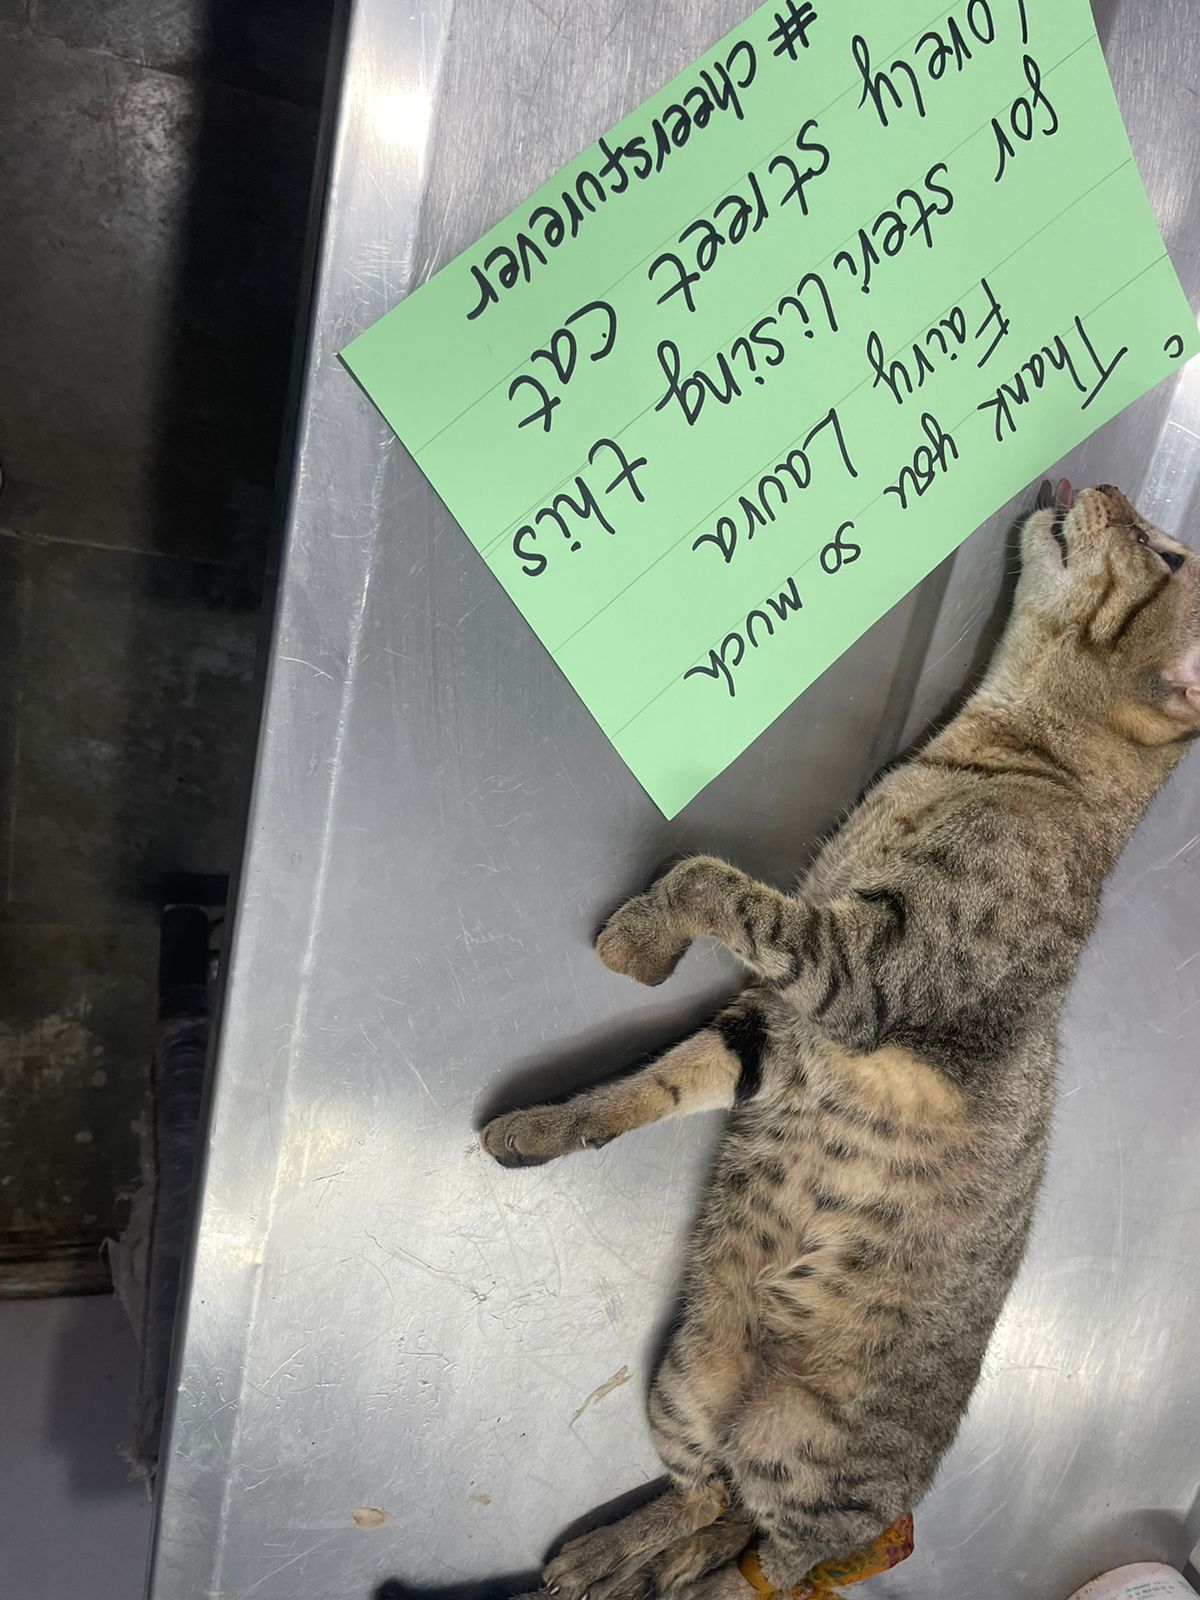 Thank you so much
Fairy Laura
for sterilising this
Lovely street cat
#cheersfurever